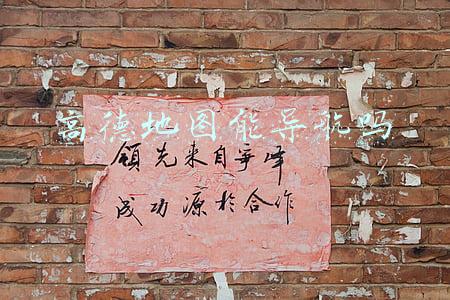 高德地图能导航吗
领先来自争峰
成功源於合作